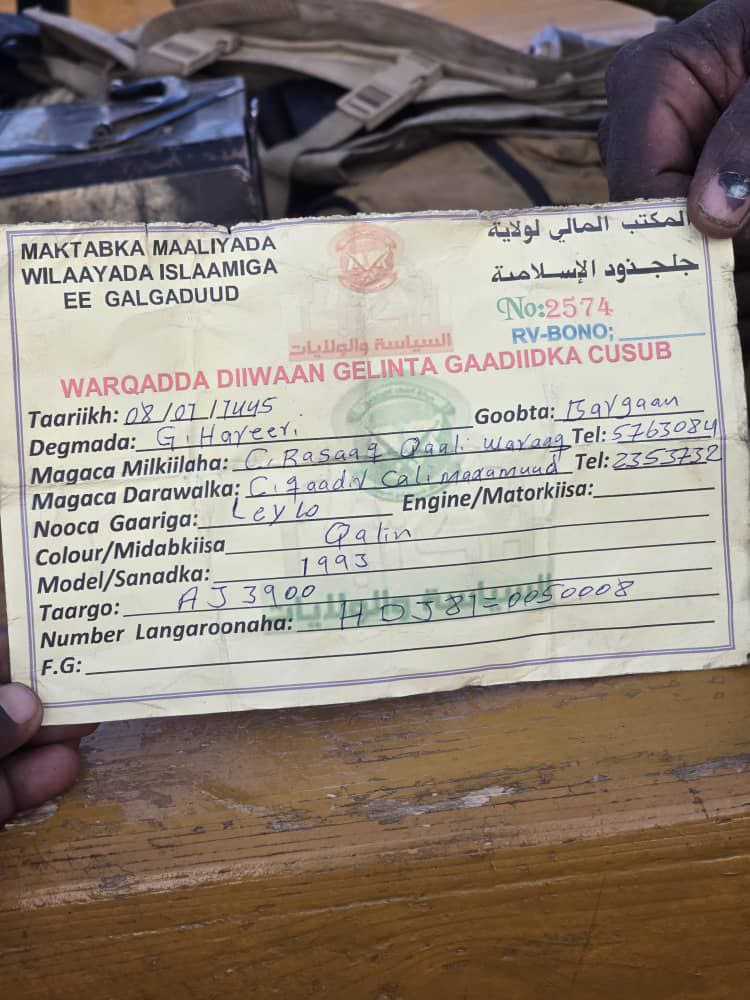 MAKTABKA MAALIYADA
WILAAYADA ISLAAMIGA
EE GALGADUUD
المكتب المالي لولاية
جلجذود الإسلامية
No:2574
RV-BONO;
السياسة والولايات
WARQADDA DIIWAAN GELINTA GAADIIDKA CUSUB
Taariikh: 08/07/1445 Goobta: Bargaan
Degmada: G.Hareeri
Magaca Milkiilaha: C.Rasaaq Qaali Waraaq Tel: 5763084
Magaca Darawalka: C.qaadir Cali Maxamuud Tel: 2353732
Nooca Gaariga: Leylo Engine/Matorkiisa:
Colour/Midabkiisa Qalin
Model/Sanadka: 1993
Taargo: AJ3900
السياسة والولايات
Number Langaroonaha: HDJ81-0050008
F.G: